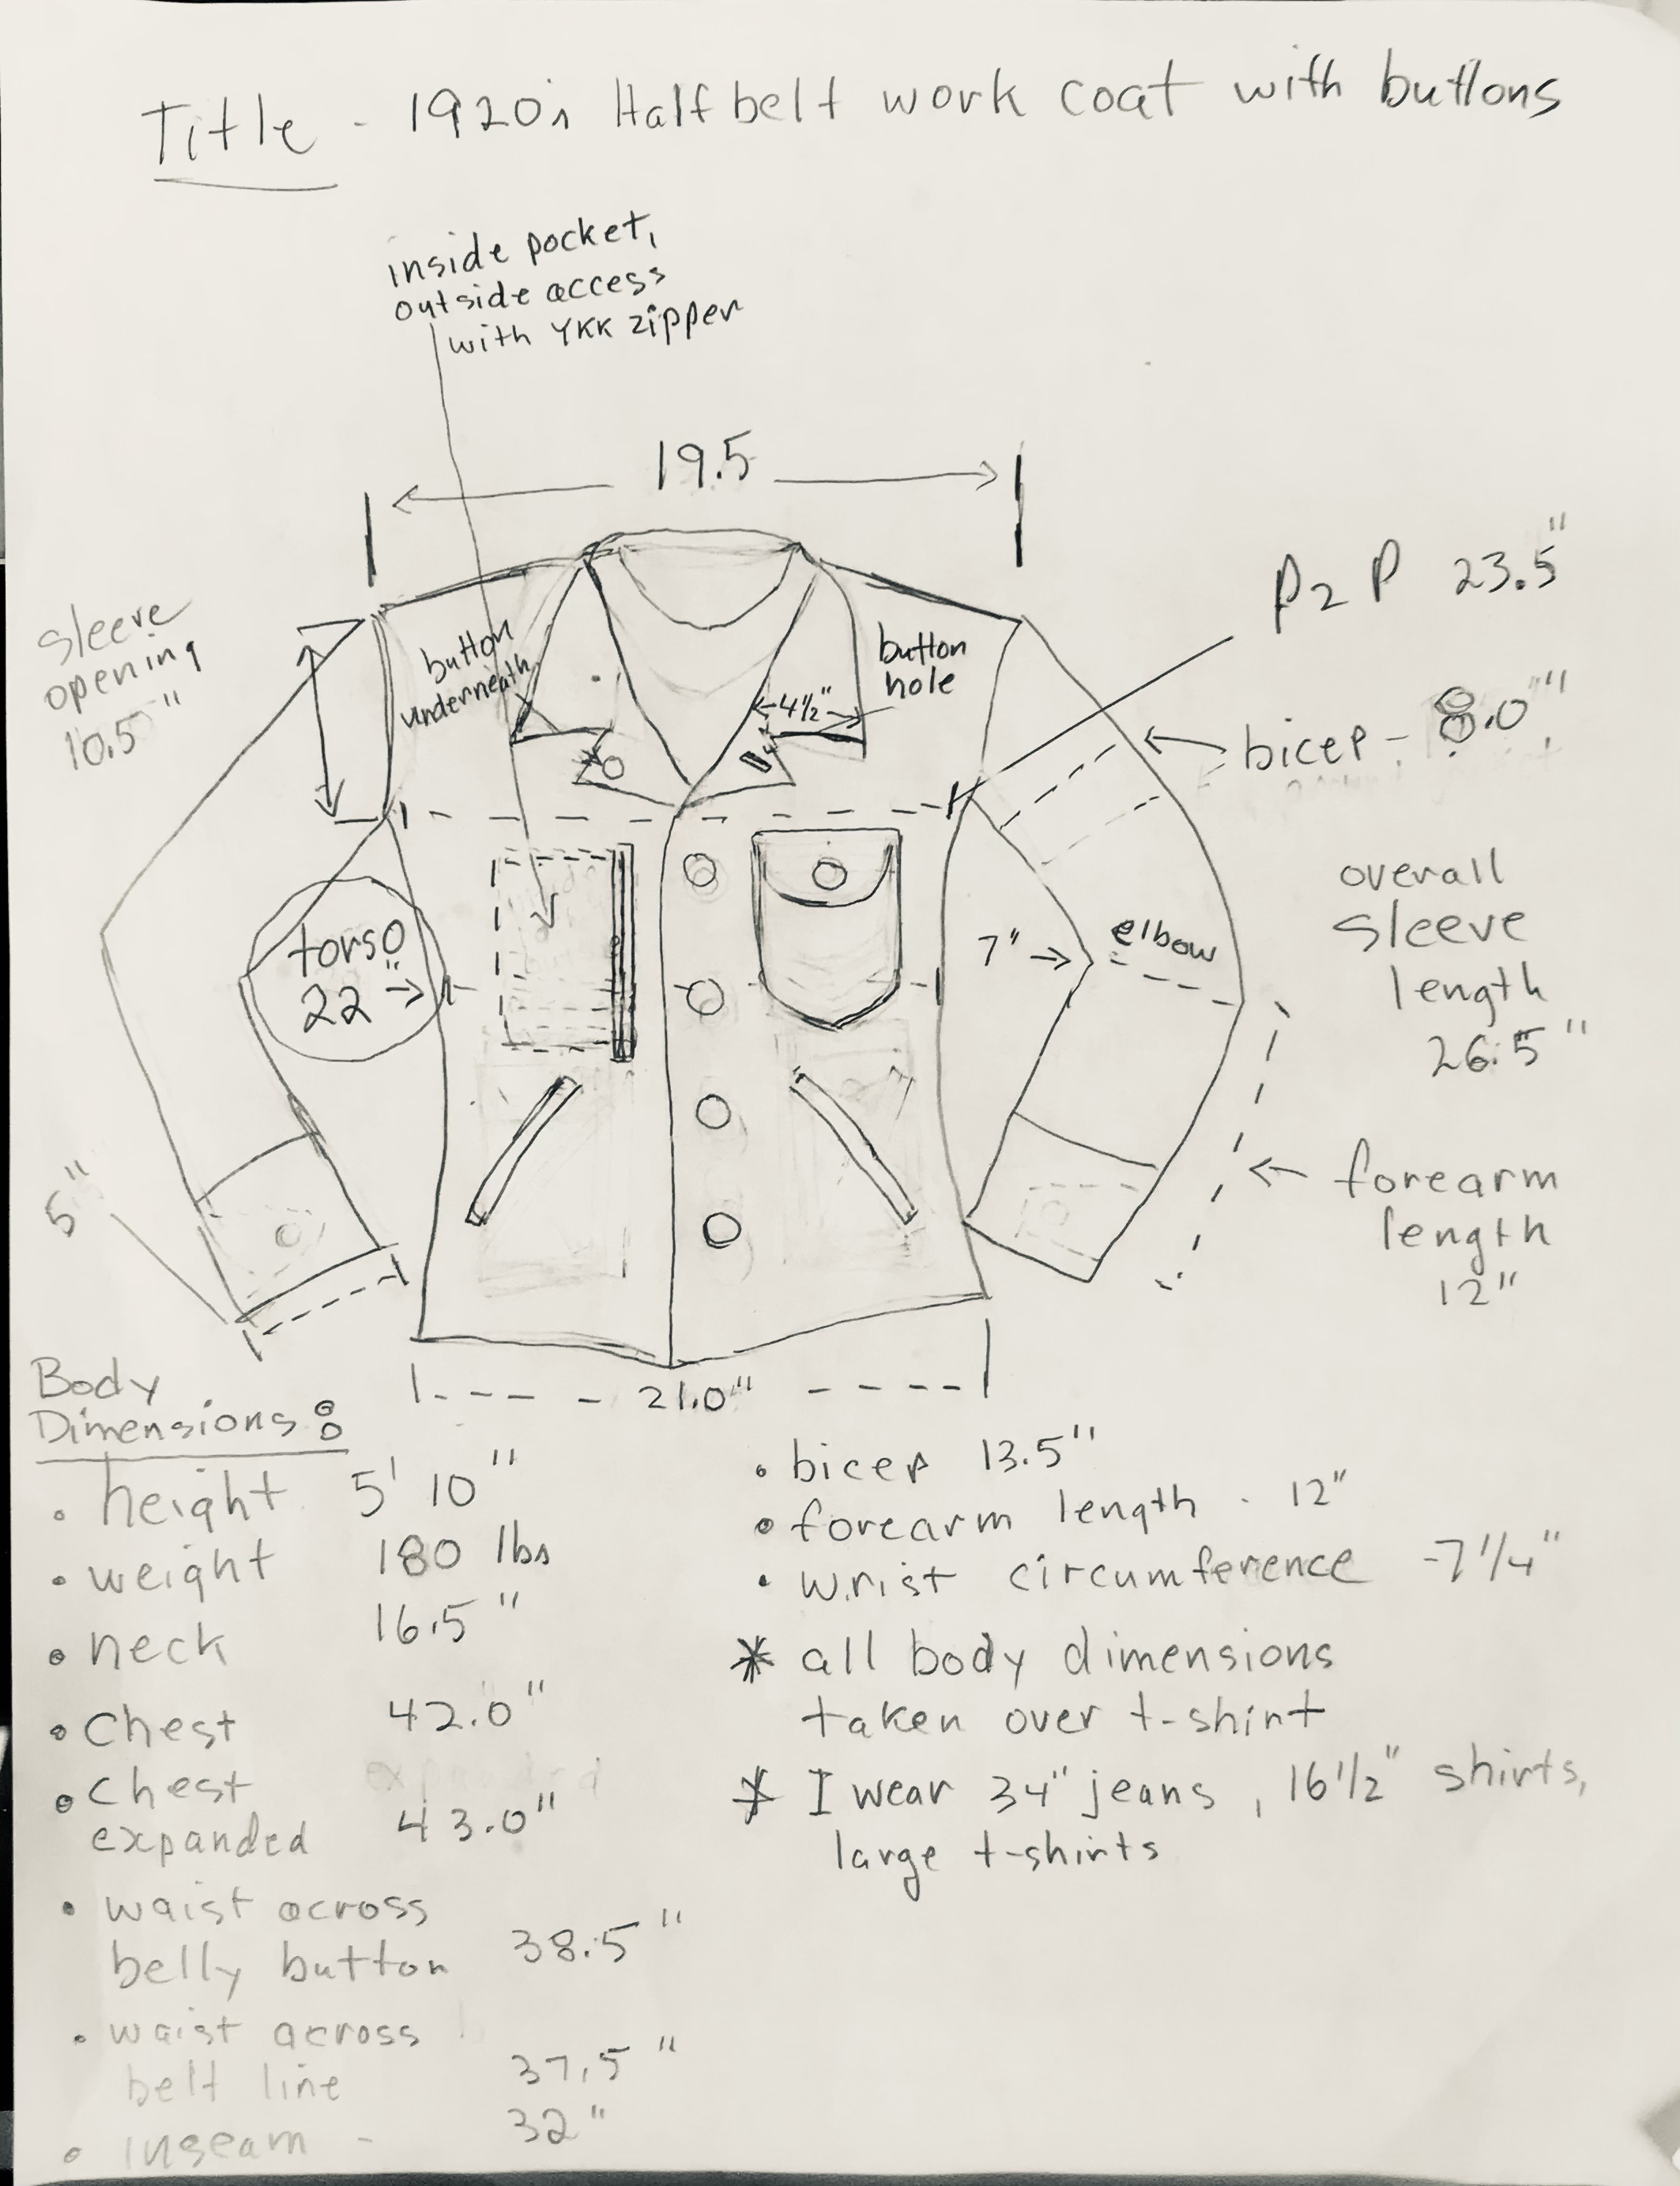 Title - 1920s Half belt work coat with buttons
inside pocket,
outside access
with YKK zipper
19.5
P2P 23.5"
sleeve
opening
10.5"
button
underneath
button
hole
4½"
bicep - 8.0"
torso
22"
7"
elbow
overall
sleeve
length
26.5"
5"
forearm
length
12"
21.0"
Body
Dimensions:
• height 5' 10"
• weight 180 lbs
• neck 16.5"
• Chest 42.0"
• Chest
expanded 43.0"
• waist across
belly button 38.5"
• waist across
belt line 37.5"
• inseam - 32"
• bicep 13.5"
• forearm length - 12"
• wrist circumference - 7 1/4"
* all body dimensions
taken over t-shirt
* I wear 34" jeans, 16 1/2" shirts,
large t-shirts